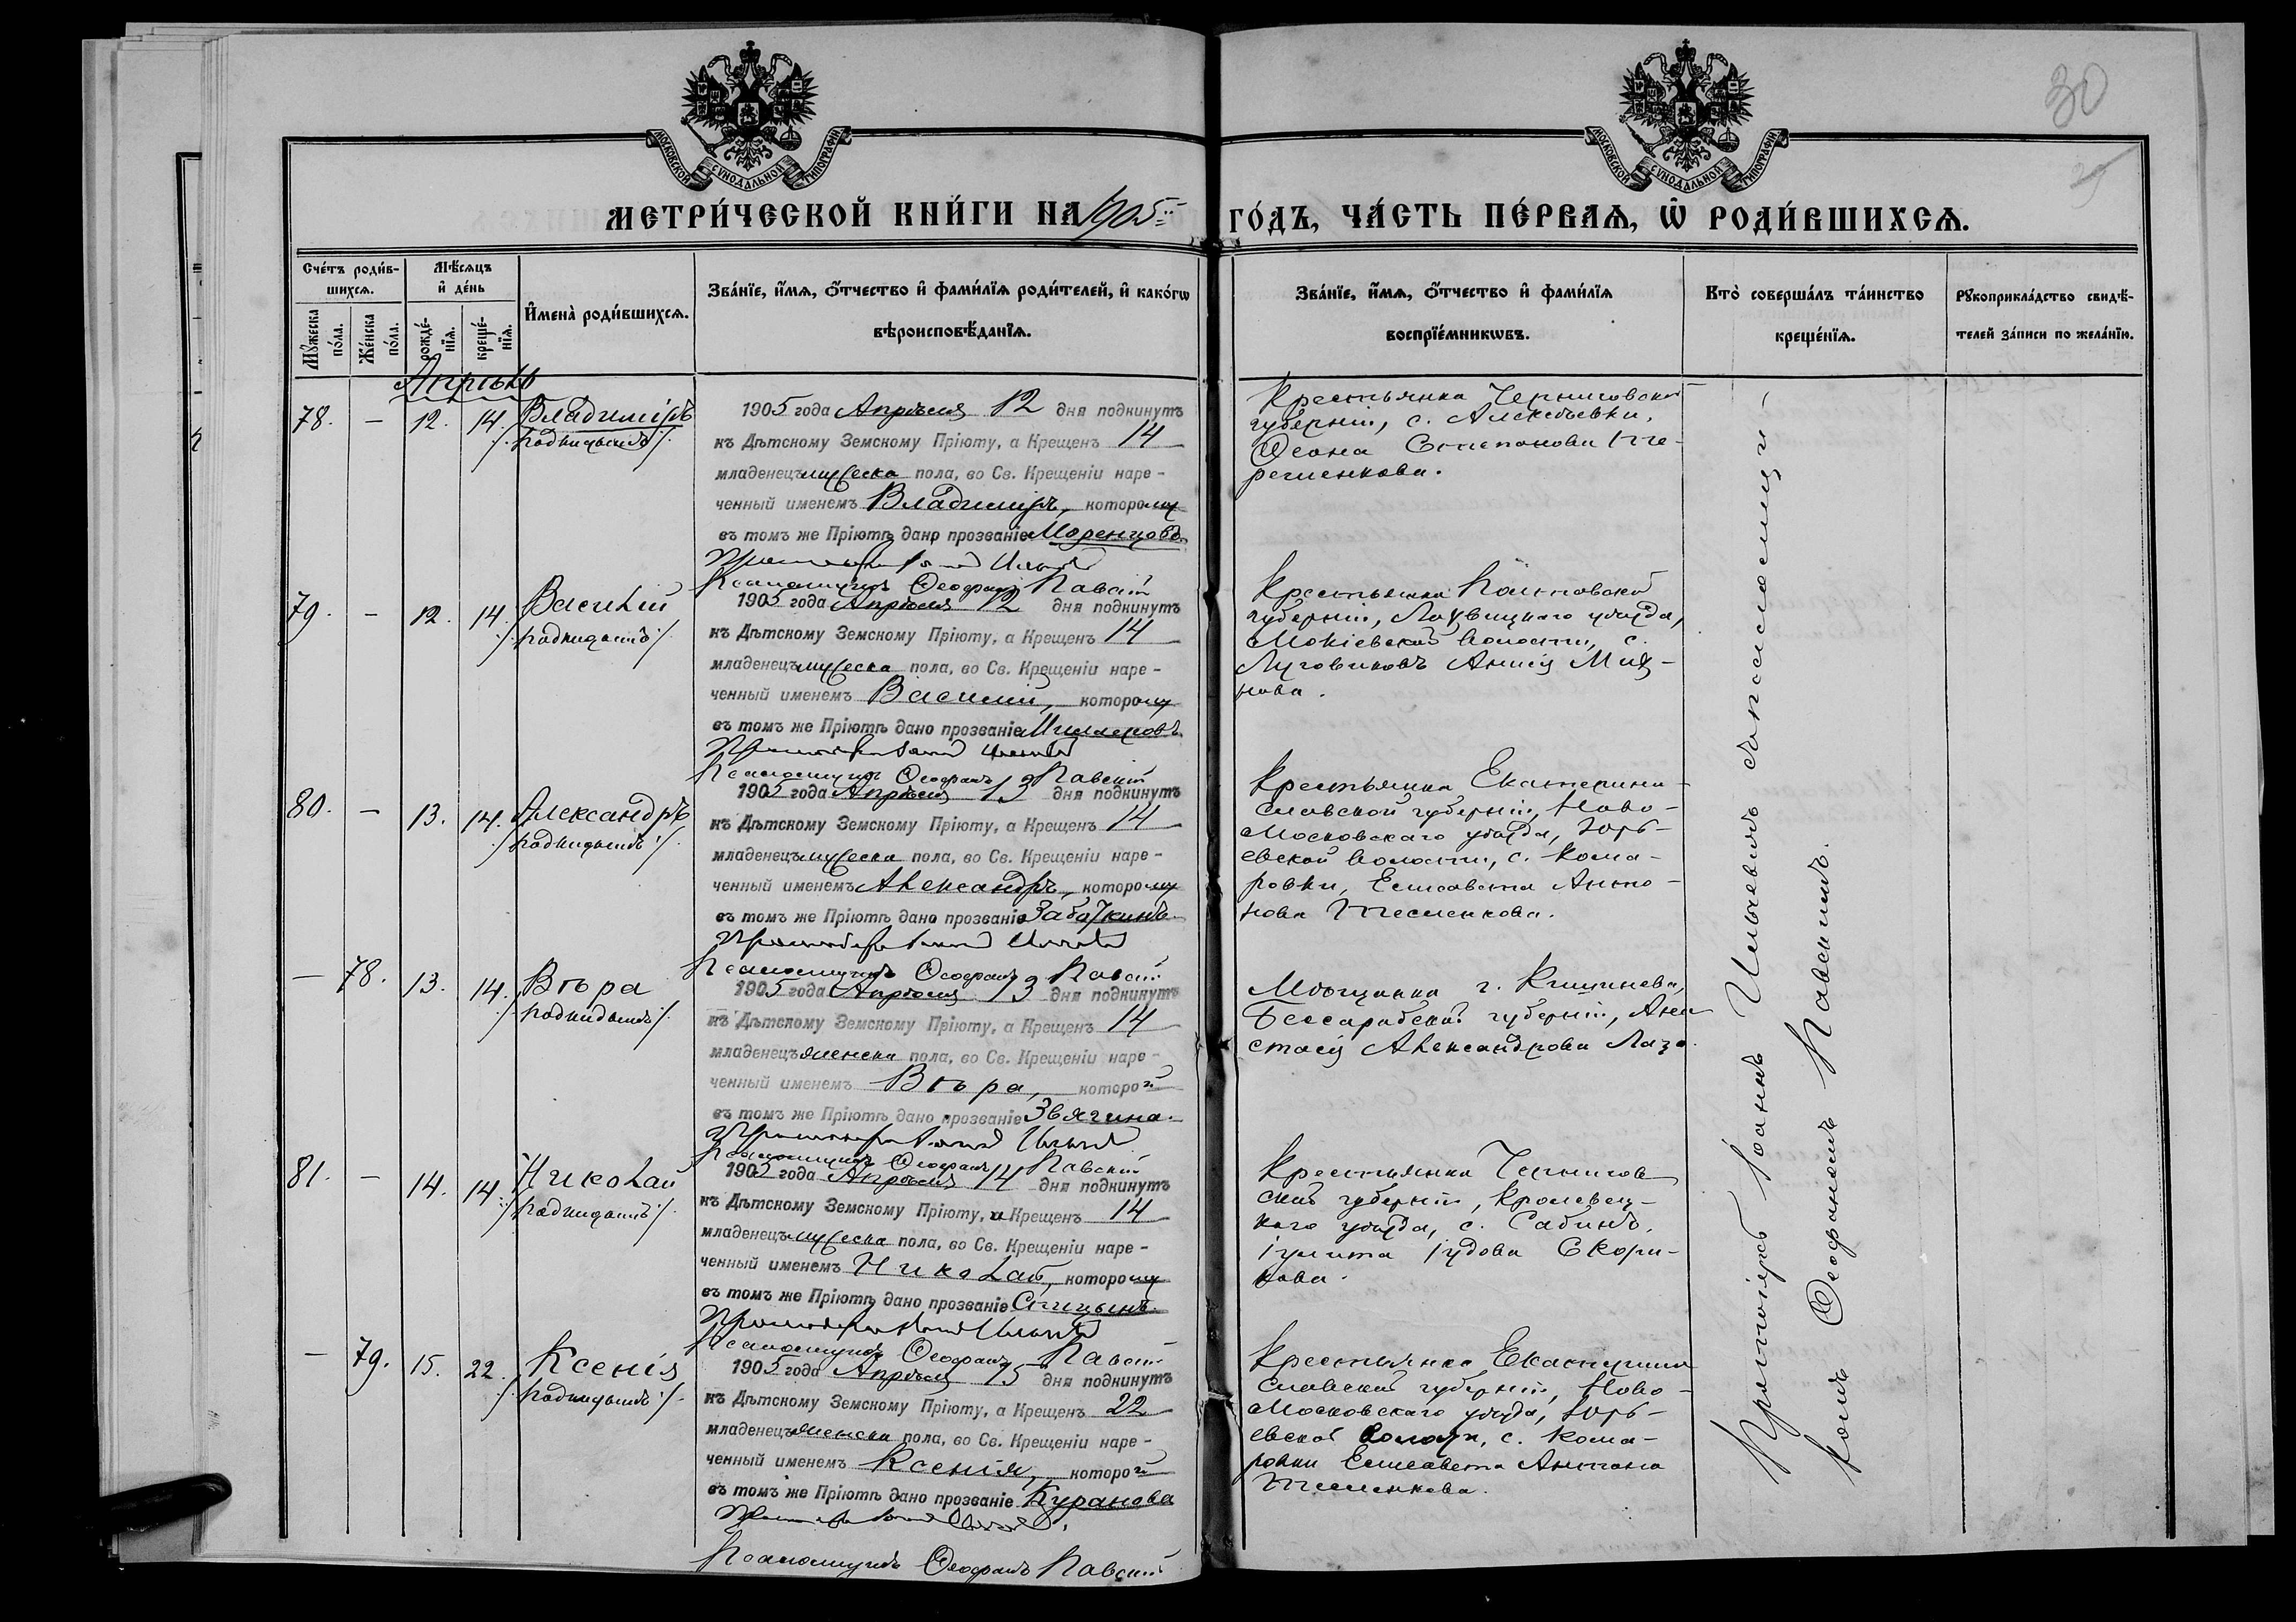 30
МОСКОВСКОЙ СѴНОДАЛЬНОЙ ТИПОГРАФІИ
МОСКОВСКОЙ СѴНОДАЛЬНОЙ ТИПОГРАФІИ
МЕТРИ́ЧЕСКОЙ КНИ́ГИ НА 1905 ГО́ДЪ, ЧА́СТЬ ПЕ́РВАѦ, Ѡ҆ РОДИ́ВШИХСѦ.
Сче́тъ роди́в-
шихсѧ.
Мꙋ́жеска по́ла.
Же́нска по́ла.
Мѣ́сѧцъ
и҆ де́нь
рожде́-
нїѧ.
креще́-
нїѧ.
И҆мена̀ роди́вшихсѧ.
Зва́нїе, и҆́мѧ, ѻ҆́тчество и҆ фами́лїѧ роди́телей, и҆ како́гѡ
вѣроисповѣ́данїѧ.
Зва́нїе, и҆́мѧ, ѻ҆́тчество и҆ фами́лїѧ
воспрїе́мникѡвъ.
Кто̀ соверша́лъ та́инство
креще́нїѧ.
Рꙋкоприкла́дство свидѣ́-
телей за́писи по жела́нїю.
Апрѣль
78. - 12. 14. Владиміръ
/:подкидышъ:/
1905 года Апрѣля 12 дня подкинутъ
къ Дѣтскому Земскому Пріюту, а Крещенъ 14
младенецъ мужеска пола, во Св. Крещеніи наре-
ченный именемъ Владиміръ, которому
въ томъ же Пріютѣ дано прозваніе Моренцовъ.
Псаломщикъ Ѳеофанъ Павскій
Крестьянка Черниговской
губерніи, с. Алексѣевки,
Степанова Те-
решенкова.
79. - 12. 14. Василій
/:подкидышъ:/
1905 года Апрѣля 12 дня подкинутъ
къ Дѣтскому Земскому Пріюту, а Крещенъ 14
младенецъ мужеска пола, во Св. Крещеніи наре-
ченный именемъ Василій, которому
въ томъ же Пріютѣ дано прозваніе
Псаломщикъ Ѳеофанъ Павскій
Крестьянка Полтавской
губерніи, Лохвицкаго уѣзда,
волости, с.
Луговиковъ Анисія Мих-
нова.
80. - 13. 14. Александръ
/:подкидышъ:/
1905 года Апрѣля 13 дня подкинутъ
къ Дѣтскому Земскому Пріюту, а Крещенъ 14
младенецъ мужеска пола, во Св. Крещеніи наре-
ченный именемъ Александръ, которому
въ томъ же Пріютѣ дано прозваніе
Псаломщикъ Ѳеофанъ Павскій
Крестьянка Екатерино-
славской губерніи, Ново-
московскаго уѣзда, Юрь-
евской волости, с. Кома-
ровки, Елисавета Анто-
нова Тесленкова.
- 78. 13. 14. Вѣра
/:подкидышъ:/
1905 года Апрѣля 13 дня подкинутъ
къ Дѣтскому Земскому Пріюту, а Крещенъ 14
младенецъ женска пола, во Св. Крещеніи наре-
ченный именемъ Вѣра, которой
въ томъ же Пріютѣ дано прозваніе Звягина.
Псаломщикъ Ѳеофанъ Павскій
Мѣщанка г. Кишинева,
Бессарабской губерніи, Ана
стасія Александрова Лазо.
81. - 14. 14 Николай
/:подкидышъ:/
1905 года Апрѣля 14 дня подкинутъ
къ Дѣтскому Земскому Пріюту, а Крещенъ 14
младенецъ мужеска пола, во Св. Крещеніи наре-
ченный именемъ Николай, которому
въ томъ же Пріютѣ дано прозваніе Спицынъ.
Псаломщикъ Ѳеофанъ Павскій
Крестьянка Чернигов
ской губерніи, Кролевец-
каго уѣзда, с.
Іулита Іудова Скори-
кова.
- 79. 15. 22. Ксенія
/:подкидышъ:/
1905 года Апрѣля 15 дня подкинутъ
къ Дѣтскому Земскому Пріюту, а Крещенъ 22
младенецъ женска пола, во Св. Крещеніи наре-
ченный именемъ Ксенія, которой
въ томъ же Пріютѣ дано прозваніе Куранова
Псаломщикъ Ѳеофанъ Павскій
Крестьянка Екатерино
славской губерніи, Ново-
московскаго уѣзда, Юрь-
евской волости, с. Кома-
ровки Елисавета Антонова
Тесленкова.
Протоіерей Іоаннъ съ псаломщи-
комъ Ѳеофаномъ Павскимъ.